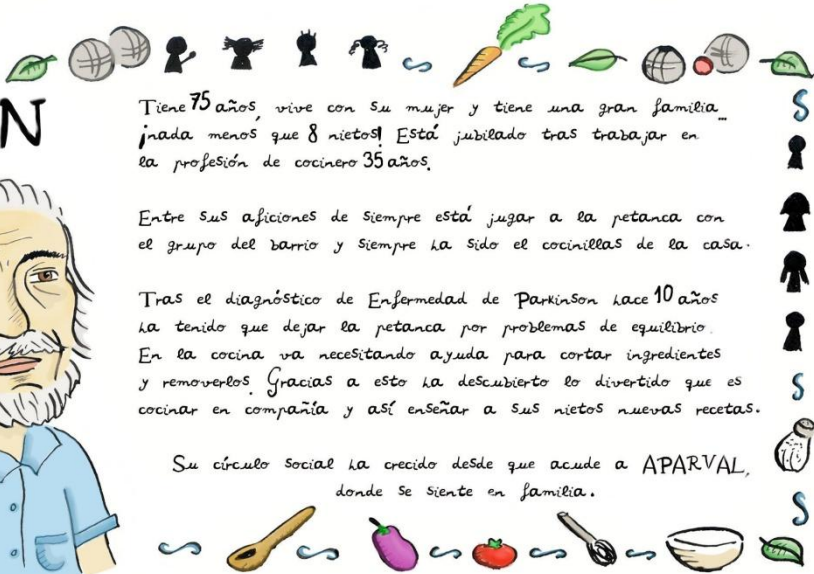 N
Tiene 75 años, vive con su mujer y tiene una gran familia...
¡nada menos que 8 nietos! Está jubilado tras trabajar en
la profesión de cocinero 35 años.
Entre sus aficiones de siempre está jugar a la petanca con
el grupo del barrio y siempre ha sido el cocinillas de la casa.
Tras el diagnóstico de Enfermedad de Parkinson hace 10 años
ha tenido que dejar la petanca por problemas de equilibrio.
En la cocina va necesitando ayuda para cortar ingredientes
y removerlos. Gracias a esto ha descubierto lo divertido que es
cocinar en compañía y así enseñar a sus nietos nuevas recetas.
Su círculo social ha crecido desde que acude a APARVAL,
donde se siente en familia.